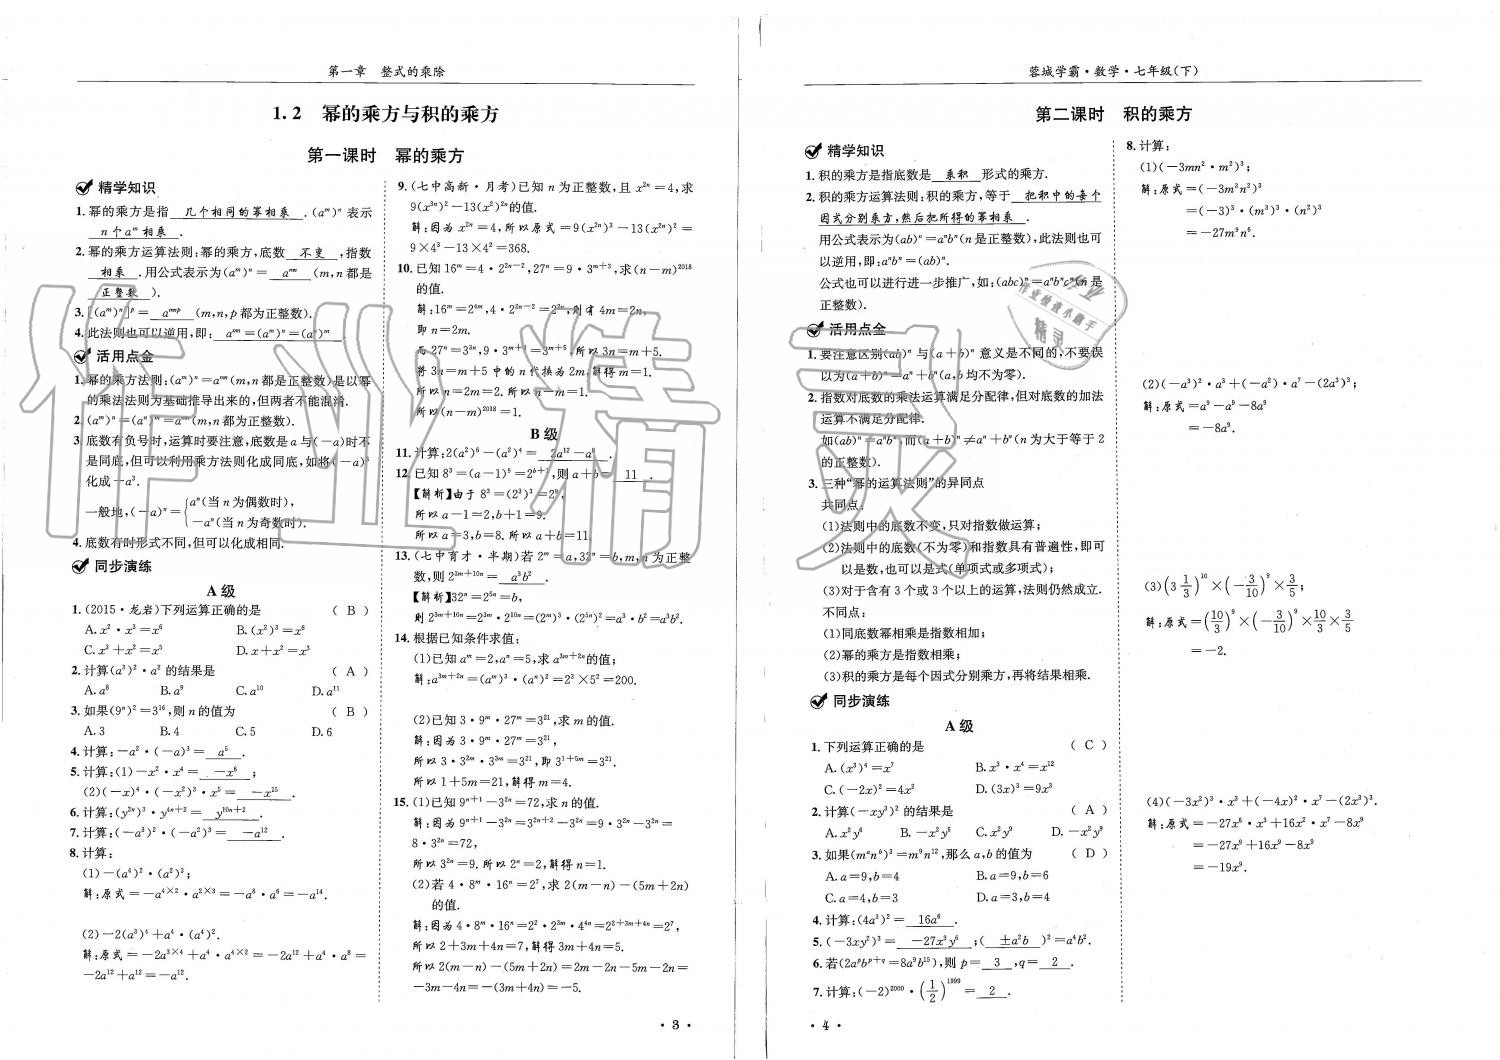 第一章 整式的乘除
1.2 幂的乘方与积的乘方
第一课时 幂的乘方
精学知识
1. 幂的乘方是指 几个相同的幂相乘 .(aᵐ)ⁿ 表示
n个aᵐ相乘 .
2. 幂的乘方运算法则:幂的乘方,底数 不变 ,指数
相乘 .用公式表示为(aᵐ)ⁿ= aᵐⁿ (m,n都是
正整数 ).
3. [(aᵐ)ⁿ]ᵖ= aᵐⁿᵖ (m,n,p都为正整数).
4. 此法则也可以逆用,即: aᵐⁿ=(aᵐ)ⁿ=(aⁿ)ᵐ
活用点金
1. 幂的乘方法则:(aᵐ)ⁿ=aᵐⁿ(m,n都是正整数)是以幂
的乘法法则为基础推导出来的,但两者不能混淆.
2. (aᵐ)ⁿ=(aⁿ)ᵐ=aᵐⁿ(m,n都为正整数).
3 底数有负号时,运算时要注意,底数是a与(-a)时不
是同底,但可以利用乘方法则化成同底,如将(-a)³
化成-a³.
一般地,(-a)ⁿ={aⁿ(当n为偶数时),
-aⁿ(当n为奇数时).
4. 底数有时形式不同,但可以化成相同.
同步演练
A 级
1. (2015·龙岩)下列运算正确的是 ( B )
A. x²·x³=x⁶ B. (x²)³=x⁶
C. x³+x²=x⁵ D. x+x²=x³
2. 计算(a³)²·a²的结果是 ( A )
A. a⁸ B. a⁹ C. a¹⁰ D. a¹¹
3. 如果(9ⁿ)²=3¹⁶,则n的值为 ( B )
A. 3 B. 4 C. 5 D. 6
4. 计算:-a²·(-a)³= a⁵ .
5. 计算:(1)-x²·x⁴= -x⁶ ;
(2)(-x)⁴·(-x²)³·x⁵= -x¹⁵ .
6. 计算:(y²ⁿ)³·y⁴ⁿ⁺²= y¹⁰ⁿ⁺² .
7. 计算:(-a³)²·(-a²)³= -a¹² .
8. 计算:
(1)-(a⁴)²·(a²)³;
解:原式=-a⁴ˣ²·a²ˣ³=-a⁸·a⁶=-a¹⁴.
(2)-2(a³)⁴+a⁴·(a⁴)².
解:原式=-2a³ˣ⁴+a⁴·a⁴ˣ²=-2a¹²+a⁴·a⁸=
-2a¹²+a¹²=-a¹².
9. (七中高新·月考)已知n为正整数,且x²ⁿ=4,求
9(x³ⁿ)²-13(x²)²ⁿ的值.
解:因为x²ⁿ=4,所以原式=9(x²ⁿ)³-13(x²ⁿ)²=
9×4³-13×4²=368.
10. 已知16ᵐ=4·2²ⁿ⁻²,27ⁿ=9·3ᵐ⁺³,求(n-m)²⁰¹⁸
的值.
解:16ᵐ=2⁴ᵐ,4·2²ⁿ⁻²=2²ⁿ,则有4m=2n,
即n=2m.
而27ⁿ=3³ⁿ,9·3ᵐ⁺³=3ᵐ⁺⁵,所以3n=m+5.
将3n=m+5中的n代换为2m,解得m=1.
所以n=2m=2.所以n-m=1.
所以(n-m)²⁰¹⁸=1.
B 级
11. 计算:2(a²)⁶-(a²)⁴= 2a¹²-a⁸ .
12. 已知8³=(a-1)⁹=2ᵇ⁺¹,则a+b= 11 .
【解析】由于8³=(2³)³=2⁹,
所以a-1=2,b+1=9.
所以a=3,b=8.所以a+b=11.
13. (七中育才·半期)若2ᵐ=a,32ⁿ=b,m,n为正整
数,则2³ᵐ⁺¹⁰ⁿ= a³b² .
【解析】32ⁿ=2⁵ⁿ=b,
则2³ᵐ⁺¹⁰ⁿ=2³ᵐ·2¹⁰ⁿ=(2ᵐ)³·(2⁵ⁿ)²=a³·b²=a³b².
14. 根据已知条件求值:
(1)已知aᵐ=2,aⁿ=5,求a³ᵐ⁺²ⁿ的值;
解:a³ᵐ⁺²ⁿ=(aᵐ)³·(aⁿ)²=2³×5²=200.
(2)已知3·9ᵐ·27ᵐ=3²¹,求m的值.
解:因为3·9ᵐ·27ᵐ=3²¹,
所以3·3²ᵐ·3³ᵐ=3²¹,即3¹⁺⁵ᵐ=3²¹.
所以1+5m=21,解得m=4.
15. (1)已知9ⁿ⁺¹-3²ⁿ=72,求n的值.
解:因为9ⁿ⁺¹-3²ⁿ=3²ⁿ⁺²-3²ⁿ=9·3²ⁿ-3²ⁿ=
8·3²ⁿ=72,
所以3²ⁿ=9.所以2ⁿ=2,解得n=1.
(2)若4·8ᵐ·16ⁿ=2⁷,求2(m-n)-(5m+2n)
的值.
解:因为4·8ᵐ·16ⁿ=2²·2³ᵐ·4⁴ⁿ=2²⁺³ᵐ⁺⁴ⁿ=2⁷,
所以2+3m+4n=7,解得3m+4n=5.
所以2(m-n)-(5m+2n)=2m-2n-5m-2n=
-3m-4n=-(3m+4n)=-5.
·3·
蓉城学霸·数学·七年级(下)
第二课时 积的乘方
精学知识
1. 积的乘方是指底数是 乘积 形式的乘方.
2. 积的乘方运算法则:积的乘方,等于 把积中的每个
因式分别乘方,然后把所得的幂相乘 .
用公式表示为(ab)ⁿ=aⁿbⁿ(n是正整数),此法则也可
以逆用,即:aⁿbⁿ=(ab)ⁿ.
公式也可以进行进一步推广,如:(abc)ⁿ=aⁿbⁿcⁿ(n是
正整数).
活用点金
1. 要注意区别(ab)ⁿ与(a+b)ⁿ意义是不同的,不要误
以为(a+b)ⁿ=aⁿ+bⁿ(a,b均不为零).
2. 指数对底数的乘法运算满足分配律,但对底数的加法
运算不满足分配律.
如(ab)ⁿ=aⁿbⁿ,而(a+b)ⁿ≠aⁿ+bⁿ(n为大于等于2
的正整数).
3. 三种“幂的运算法则”的异同点
共同点:
(1)法则中的底数不变,只对指数做运算;
(2)法则中的底数(不为零)和指数具有普遍性,即可
以是数,也可以是式(单项式或多项式);
(3)对于含有3个或3个以上的运算,法则仍然成立.
不同点:
(1)同底数幂相乘是指数相加;
(2)幂的乘方是指数相乘;
(3)积的乘方是每个因式分别乘方,再将结果相乘.
同步演练
A 级
1. 下列运算正确的是 ( C )
A. (x³)⁴=x⁷ B. x³·x⁴=x¹²
C. (-2x)²=4x² D. (3x)³=9x³
2. 计算(-xy³)²的结果是 ( A )
A. x²y⁶ B. -x²y⁶ C. x²y⁹ D. -x²y⁹
3. 如果(mᵃnᵇ)³=m⁹n¹²,那么a,b的值为 ( D )
A. a=9,b=4 B. a=9,b=6
C. a=4,b=3 D. a=3,b=4
4. 计算:(4a³)²= 16a⁶ .
5. (-3xy²)³= -27x³y⁶ ;( ±a²b )²=a⁴b².
6. 若(2aᵖbᵖ⁺q)³=8a⁹b¹⁵),则p= 3 ,q= 2 .
7. 计算:(-2)²⁰⁰⁰·(1/2)¹⁹⁹⁹= 2 .
8. 计算:
(1)(-3mn²·m²)³;
解:原式=(-3m³n²)³
=(-3)³·(m³)³·(n²)³
=-27m⁹n⁶.
(2)(-a³)²·a³+(-a²)·a⁷-(2a³)³;
解:原式=a⁹-a⁹-8a⁹
=-8a⁹.
(3)(3 1/3)¹⁰×(-3/10)⁹×3/5;
解:原式=(10/3)⁹×(-3/10)⁹×10/3×3/5
=-2.
(4)(-3x²)³·x³+(-4x)²·x⁷-(2x³)³.
解:原式=-27x⁶·x³+16x²·x⁷-8x⁹
=-27x⁹+16x⁹-8x⁹
=-19x⁹.
·4·
作业精灵
作业检查小助手
精灵